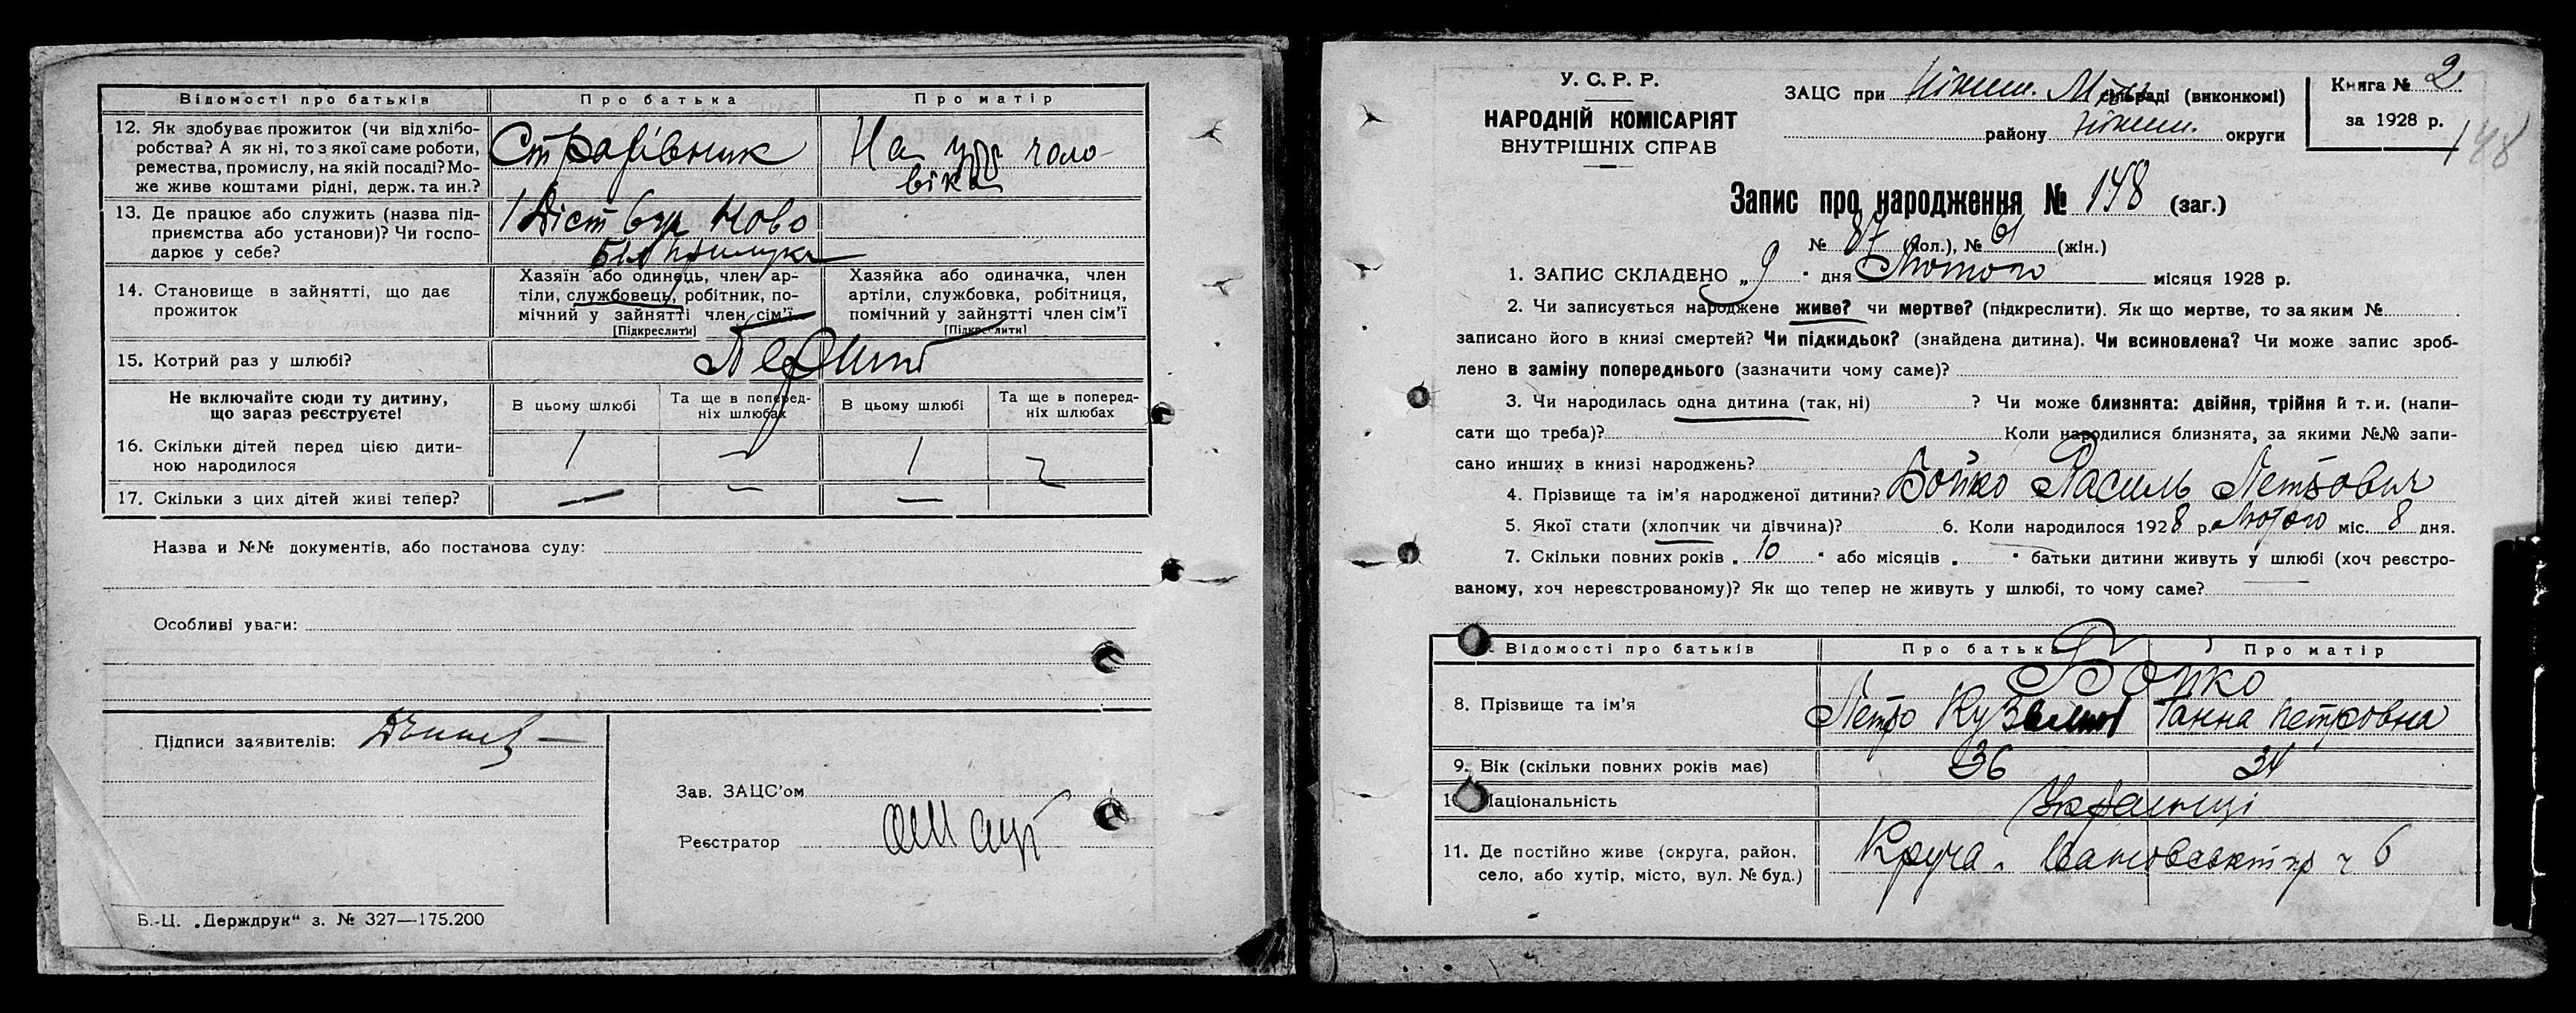 Відомості про батьків Про батька Про матір
12. Як здобуває прожиток (чи від хлібо-
робства? А як ні, то з якої саме роботи,
ремества, промислу, на якій посаді? Мо-
же живе коштами рідні, держ. та ин.?
На чоло-
віка
13. Де працює або служить (назва під-
приємства або установи)? Чи госпо-
дарює у себе?
14. Становище в зайнятті, що дає
прожиток
Хазяїн або одинець, член ар-
тіли, службовець, робітник, по-
мічний у зайнятті член сім'ї
[Підкреслити]
Хазяйка або одиначка, член
артіли, службовка, робітниця,
помічний у зайнятті член сім'ї
[Підкреслити]
15. Котрий раз у шлюбі?
Не включайте сюди ту дитину,
що зараз реєструєте!
В цьому шлюбі
Та ще в поперед-
ніх шлюбах
В цьому шлюбі
Та ще в поперед-
ніх шлюбах
16. Скільки дітей перед цією дити-
ною народилося
1 — 1 —
17. Скільки з цих дітей живі тепер?
— — —
Назва и №№ документів, або постанова суду:
Особливі уваги:
Підписи заявителів:
Зав. ЗАЦС'ом
Реєстратор
Б.-Ц. „Держдрук“ з. № 327—175.200
У. С. Р. Р.
НАРОДНІЙ КОМІСАРІЯТ
ВНУТРІШНІХ СПРАВ
ЗАЦС при Ніжин. Міськраді (виконкомі)
району Ніжин. округи
Книга № 2
за 1928 р.
148
Запис про народження № 148 (заг.)
№ 87 (чол.), № 61 (жін.)
1. ЗАПИС СКЛАДЕНО „9“ дня Лютого місяця 1928 р.
2. Чи записується народжене живе? чи мертве? (підкреслити). Як що мертве, то за яким №
записано його в книзі смертей? Чи підкидьок? (знайдена дитина). Чи всиновлена? Чи може запис зроб-
лено в заміну попереднього (зазначити чому саме)?
3. Чи народилась одна дитина (так, ні) ? Чи може близнята: двійня, трійня й т. и. (напи-
сати що треба)? Коли народилися близнята, за якими №№ запи-
сано инших в книзі народжень?
4. Прізвище та ім'я народженої дитини? Бойко Василь Петрович
5. Якої стати (хлопчик чи дівчина)? 6. Коли народилося 1928 р. Лютого міс. 8 дня.
7. Скільки повних років „10“ або місяців „ “ батьки дитини живуть у шлюбі (хоч реєстро-
ваному, хоч нереєстрованому)? Як що тепер не живуть у шлюбі, то чому саме?
Відомості про батьків Про батька Про матір
8. Прізвище та ім'я
Бойко
Петро Ганна Петровна
9. Вік (скільки повних років має) 36 34
Національність Українці
11. Де постійно живе (округа, район,
село, або хутір, місто, вул. № буд.)
Круча 6